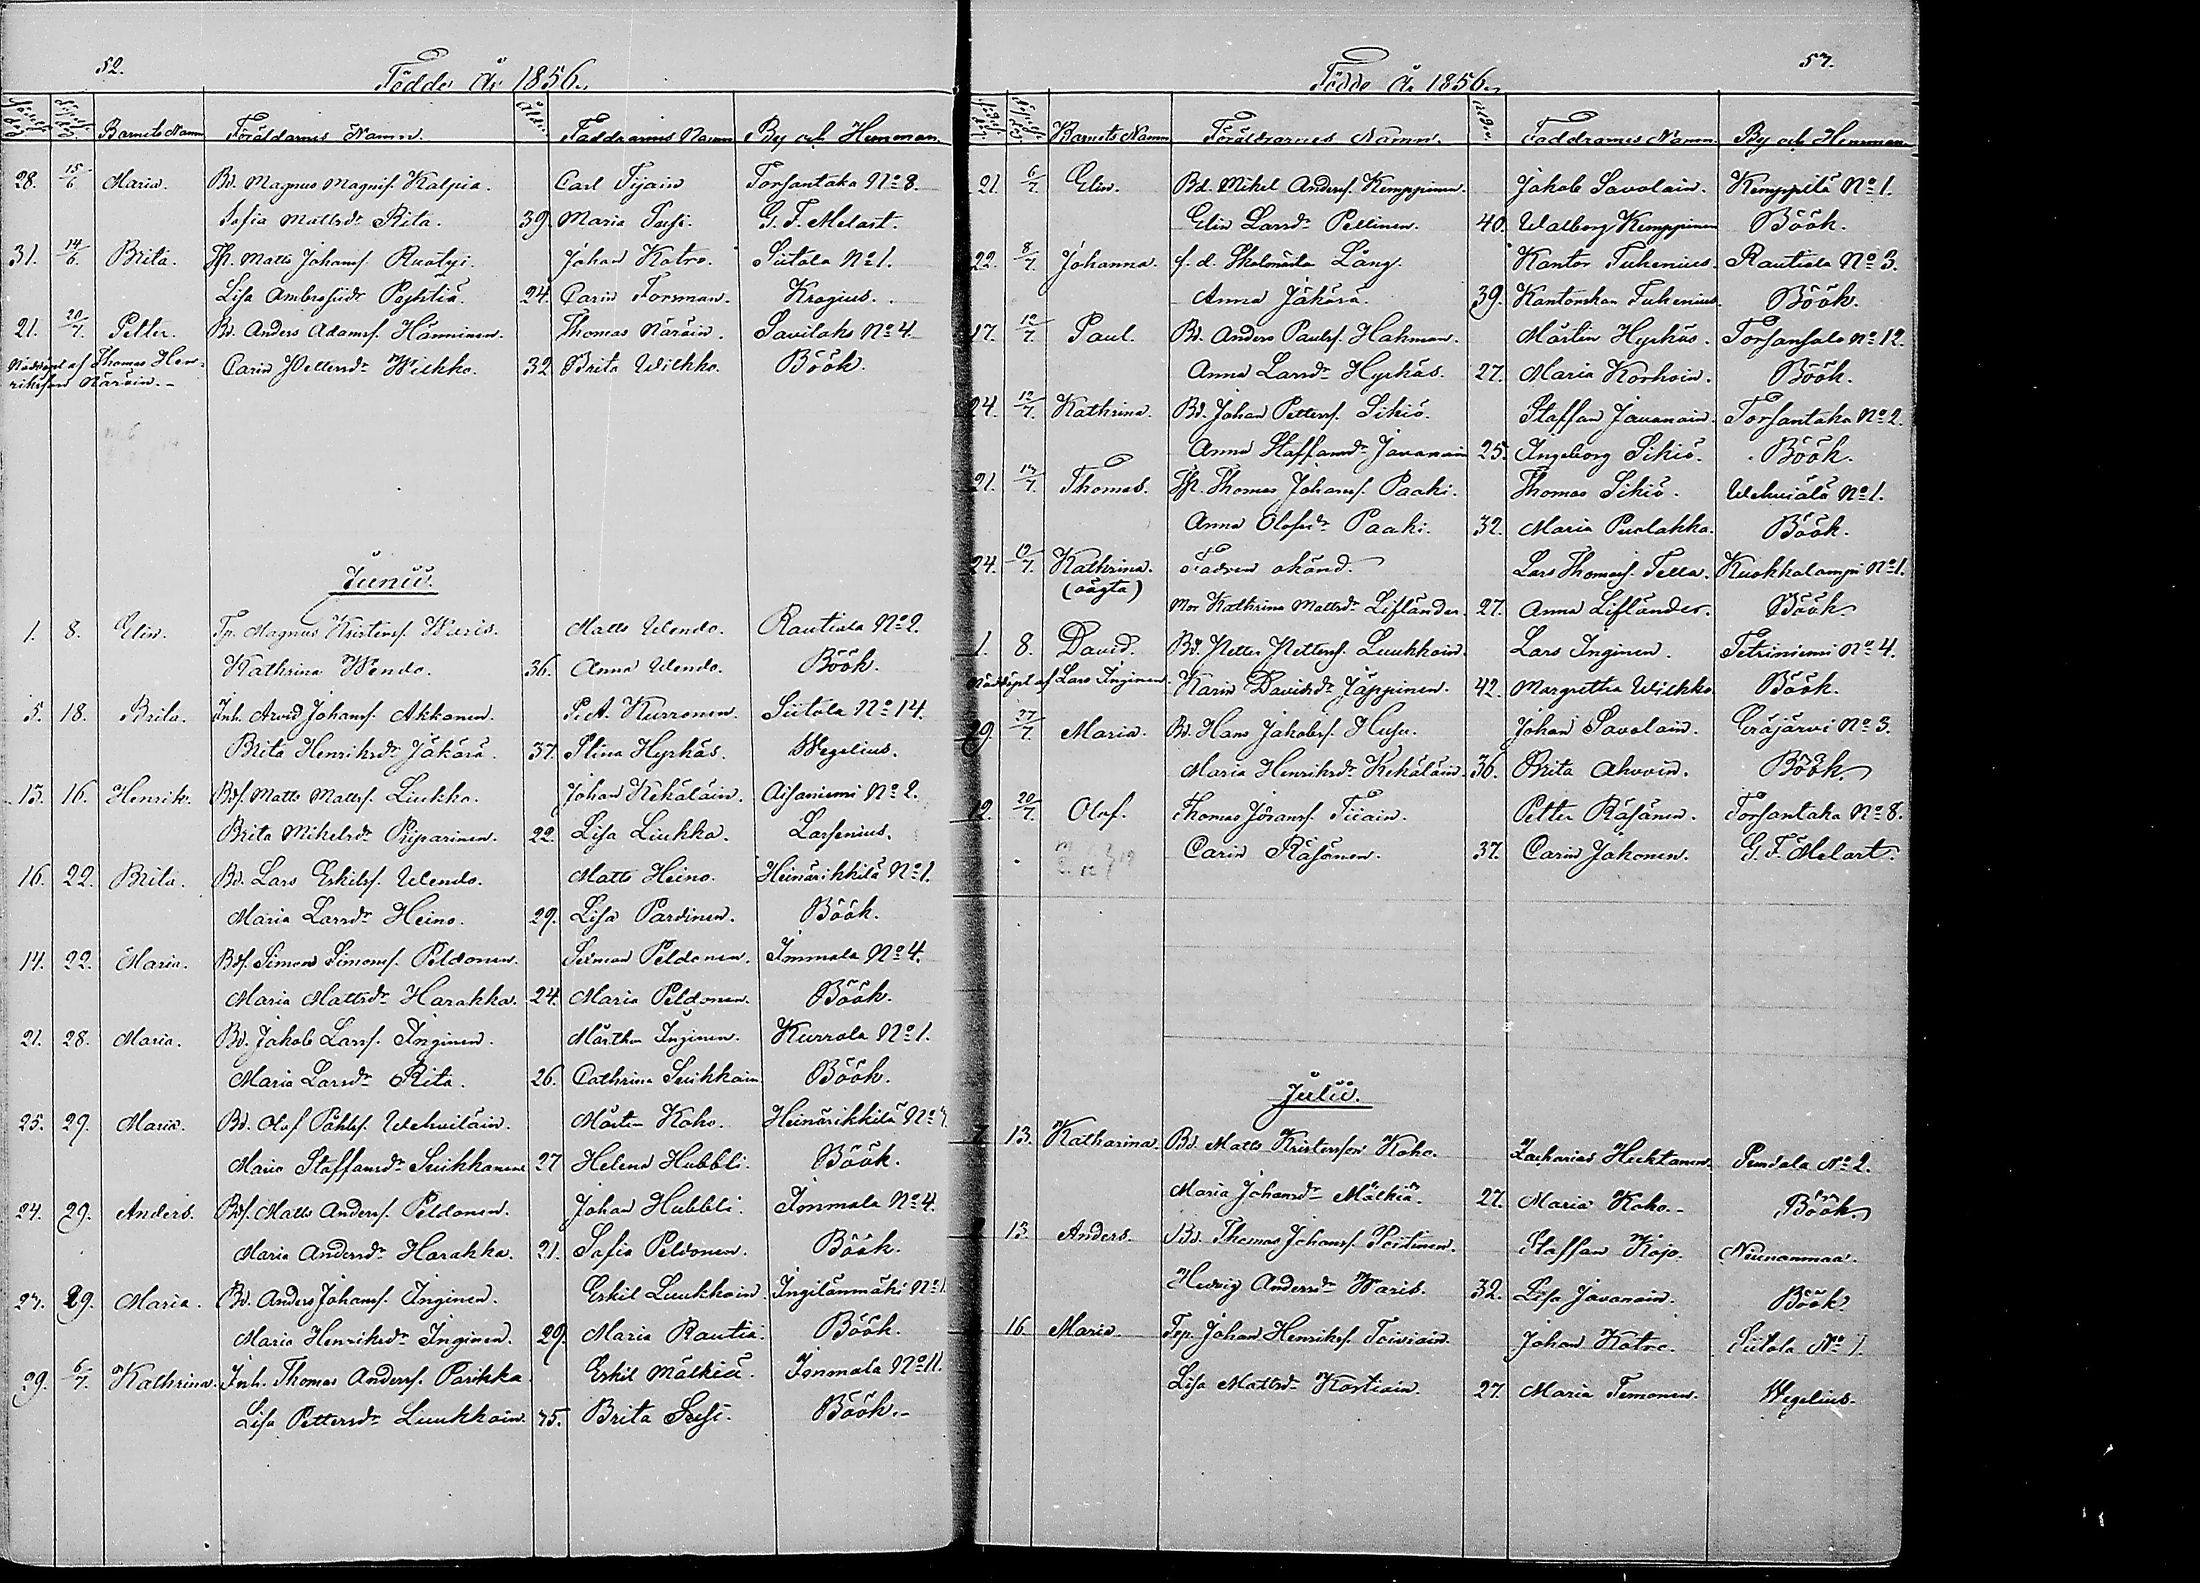 52.
Födde År 1856.
Barnets Namn Föräldarnes Namn. Ålder. Faddrarnes Namn By och Hemman.
28. 15/6 Maria. Bd. Magnus Magnif. Kalpia. Carl Tijain Torsantaka No 8.
Sofia Mattsdr Rita. 39. Maria Susi. G. F. Melart.
31. 14/6 Brita. Matts Johansf. Ruotzi. Johan Kotro. Siitola No 1.
Lisa Ambrosiidr Pojhtiä. 24. Carin Forsman. Krogius.
21. 20/7 Petter. Bd. Anders Adamsf. Hänninen. Thomas Näräin. Savilaks No 4.
Nöddöpt af Thomas Hen-
riksson Näräin. Carin Pettersdr Wilkko. 32 Brita Wilkko. Böök.
Junii.
1. 8. Elin. Tp. Magnus Kristersf. Waris. Matts Uendo. Rautiala No 2.
Kathrina Wendo. 36. Anna Uendo. Böök.
5. 18. Brita. Inh. Arvid Johansf. Akkanen. Pet. Kurronen. Siitola No 14.
Brita Henriksdr Jäkärä. 37. Stina Hyrkäs. Wegelius.
13. 16. Henrik. Bdf. Matts Mattsf. Liukko. Johan Kekäläin. Aisaniemi No 2.
Brita Mikelsdr Pijparinen. 22. Lisa Liukko. Larsenius.
16. 22. Brita. Bd. Lars Eskilsf. Uendo. Matts Heino. Heinärikkilä No 1.
Maria Larsdr Heino. 29. Lisa Pardinen. Böök.
14. 22. Maria. Bdf. Simon Simonsf. Peldonen. Simon Peldonen. Immala No 4.
Maria Mattsdr Harakka. 24. Maria Peldonen. Böök.
21. 28. Maria. Bd. Jakob Larsf. Inginen. Mårthen Inginen. Kurrola No 1.
Maria Larsdr Rita. 26. Cathrina Suikkain Böök.
25. 29. Maria. Bd. Olof Påhlsf. Uehviläin. Mårten Koho. Heinärikkilä No
Maria Staffansdr Suikkanen 27 Helena Hubbli. Böök.
24. 29. Anders. Bdf. Matts Andersf. Peldonen. Johan Hubbli. Immala No 4.
Maria Andersdr Harakka. 21. Sofia Peldonen. Böök.
27. 29. Maria. Bd. Anders Johansf. Inginen. Eskil Luukkain. Ingilänmäki No 1.
Maria Henriksdr Inginen. 29. Maria Rautia. Böök.
29. 6/7. Kathrina. Inh. Thomas Andersf. Parikka Eskil Mälkiä. Immala No 11.
Lisa Pettersdr Luukkain. 45. Brita Susi. Böök.
57.
Födde År 1856.
Barnets Namn Föräldrarnes Namn. Ålder Faddrarnes Namn. By och Hemman.
21. 6/7. Elin. Bd. Mikel Andersf. Kemppinen. Jakob Savolain. Kemppilä No 1.
Elin Larsdr Pellinen. 40. Walborg Kemppinen Böök.
22. 8/7. Johanna. f. d. Skolmäst. Lång. Kantor Tukenius. Rautiala No 3.
Anna Jäkärä. 39. Kantorskan Tukenius. Böök.
17. 12/7 Paul. Bd. Anders Paulsf. Hakman. Mårten Hyrkäs. Torsansalo No 12.
Anna Larsdr Hyrkäs. 27. Maria Korhoin. Böök.
24. 12/7. Kathrina. Bd. Johan Pettersf. Sikiö. Staffan Javanain. Torsantaka No 2.
Anna Staffansdr Javanain 25. Ingeborg Sikiö. Böök.
21. 13/7. Thomas. Thomas Johansf. Paaki. Thomas Sikiö. Uehviälä No 1.
Anna Olofsdr Paaki. 32. Maria Puolakka. Böök.
24. 19/7. Kathrina. Fadren okänd. Lars Thomasf. Tella. Kuokkalampi No 1.
(oägta) Mor Kathrina Mattsdr Lifländer. 27. Anna Lifländer. Böök.
1. 8. David. Bd. Petter Pettersf. Luukkain. Lars Inginen. Tetriniemi No 4.
Nöddöpt af Lars Inginen. Karin Davidsdr Jäppinen. 42. Margretha Wilkko Böök.
29. 27/7. Maria. Bd. Hans Jakobsf. Husu. Johan Savolain. Eräjärvi No 3.
Maria Henriksdr Kekäläin. 36. Brita Ahvoin. Böök.
12. 20/7. Olof. Thomas Jöransf. Tiiain. Petter Räsänen. Torsantaka No 8.
Carin Räsänen. 37. Carin Jakonen. G. F. Melart.
Julii.
7. 13. Katharina. Bd. Matts Kristersson Koho. Zacharias Hecktanen. Pensala No 2.
Maria Johansdr Mälkiä. 27. Maria Koho. Böök.
13. Anders. Bd. Thomas Johansf. Poitinen. Staffan Kojo. Niinanmaa.
Hedvig Andersdr Waris. 32. Lisa Javanain. Böök.
16. Maria. Torp. Johan Henriksf. Toiviain. Johan Kotro. Siitola No 1.
Lisa Mattsdr Kostiain. 27. Maria Temonen. Wegelius.